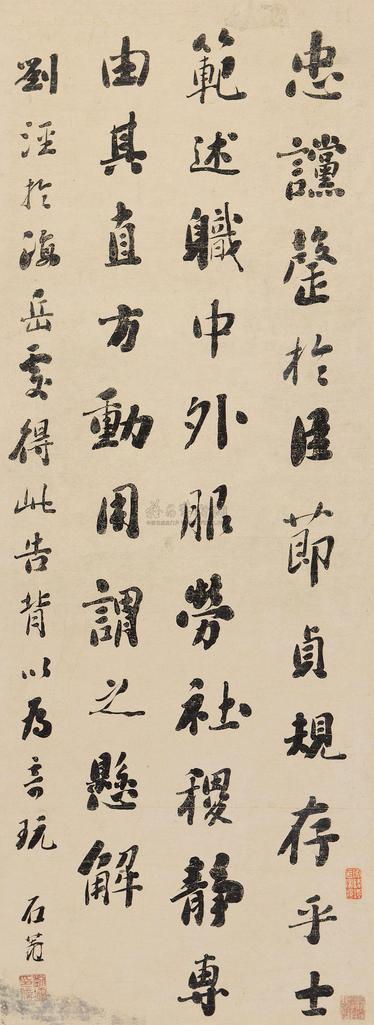 忠讜罄於臣節貞規存乎士
範述職中外服勞社稷靜專
由其直方動用謂之懸解
劉涇於海岳處得此告背以為奇玩
石菴